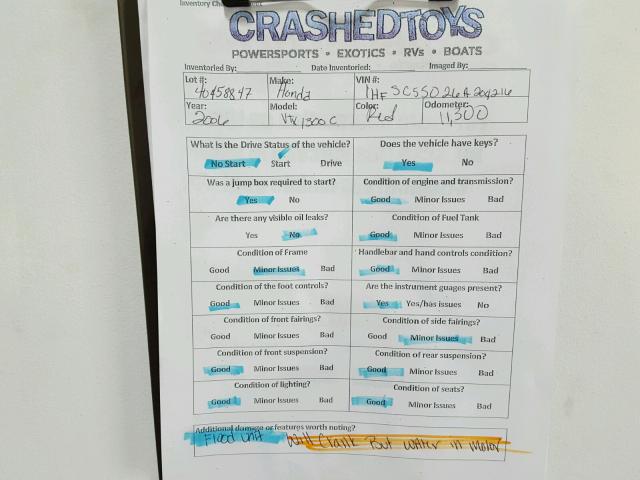 Inventory Che
CRASHEDTOYS
POWERSPORTS • EXOTICS • RVs • BOATS
Inventoried By: Date Inventoried: Imaged By:
Lot #: 40458847 Make: Honda VIN #: 1HFSC55026A204216
Year: 2006 Model: VTX1300C Color: Red Odometer: 11,300
What is the Drive Status of the vehicle? Does the vehicle have keys?
No Start Start Drive Yes No
Was a jump box required to start? Condition of engine and transmission?
Yes No Good Minor Issues Bad
Are there any visible oil leaks? Condition of Fuel Tank
Yes No Good Minor Issues Bad
Condition of Frame Handlebar and hand controls condition?
Good Minor Issues Bad Good Minor Issues Bad
Condition of the foot controls? Are the instrument guages present?
Good Minor Issues Bad Yes Yes/has issues No
Condition of front fairings? Condition of side fairings?
Good Minor Issues Bad Good Minor Issues Bad
Condition of front suspension? Condition of rear suspension?
Good Minor Issues Bad Good Minor Issues Bad
Condition of lighting? Condition of seats?
Good Minor Issues Bad Good Minor Issues Bad
Additional damage or features worth noting?
Flood unit Will Crank But water in motor